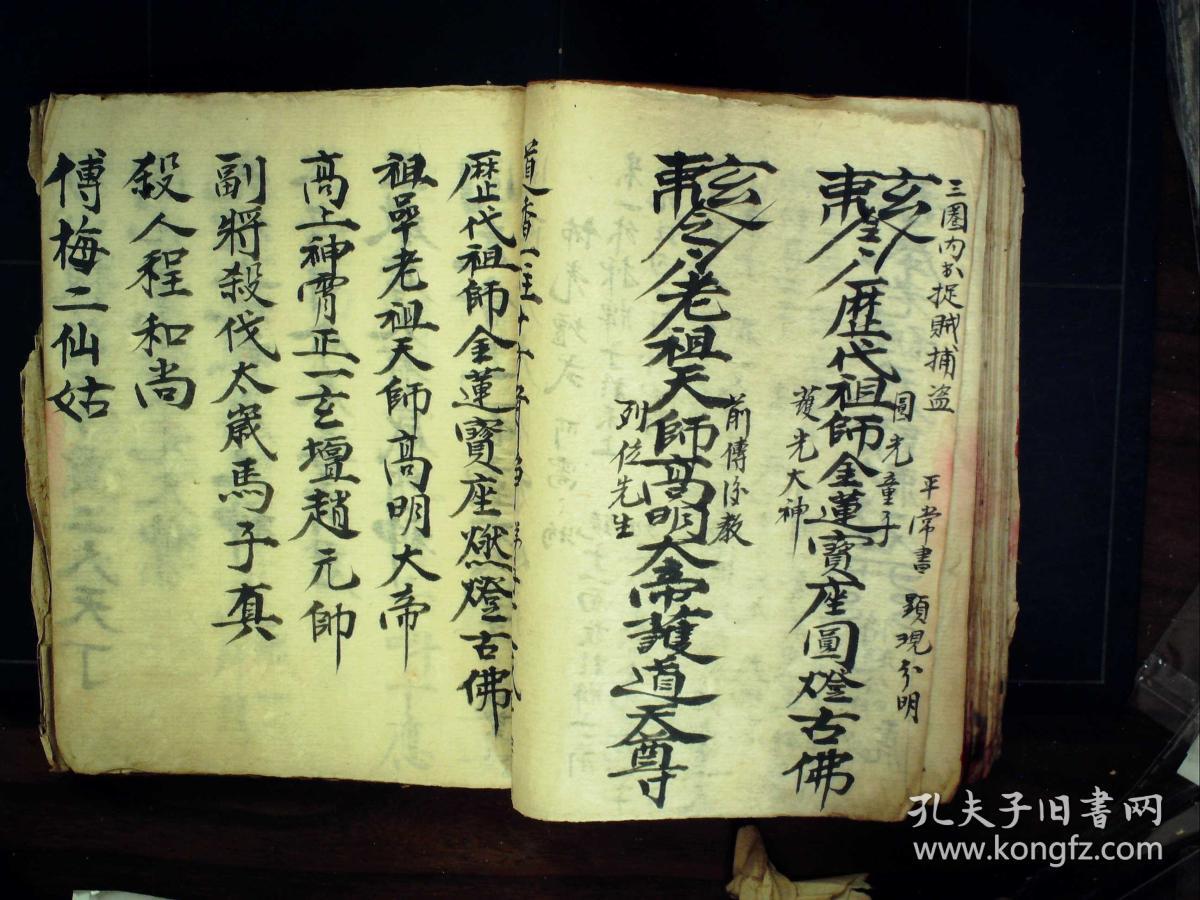 三圈内 捉賊捕盗
平常書 顕現分明
圓光童子
歷代祖師金蓮寳座圓燈古佛
護光大神
前傳後教
老祖天師高明大帝護道天尊
列位先生
道香一炷
歷代祖師金蓮寳座燃燈古佛
祖 老祖天師高明大帝
高上神霄正一玄壇趙元帥
副將殺伐太嵗馬子真
殺人程和尚
傅梅二仙姑
孔夫子旧書网
www.kongfz.com